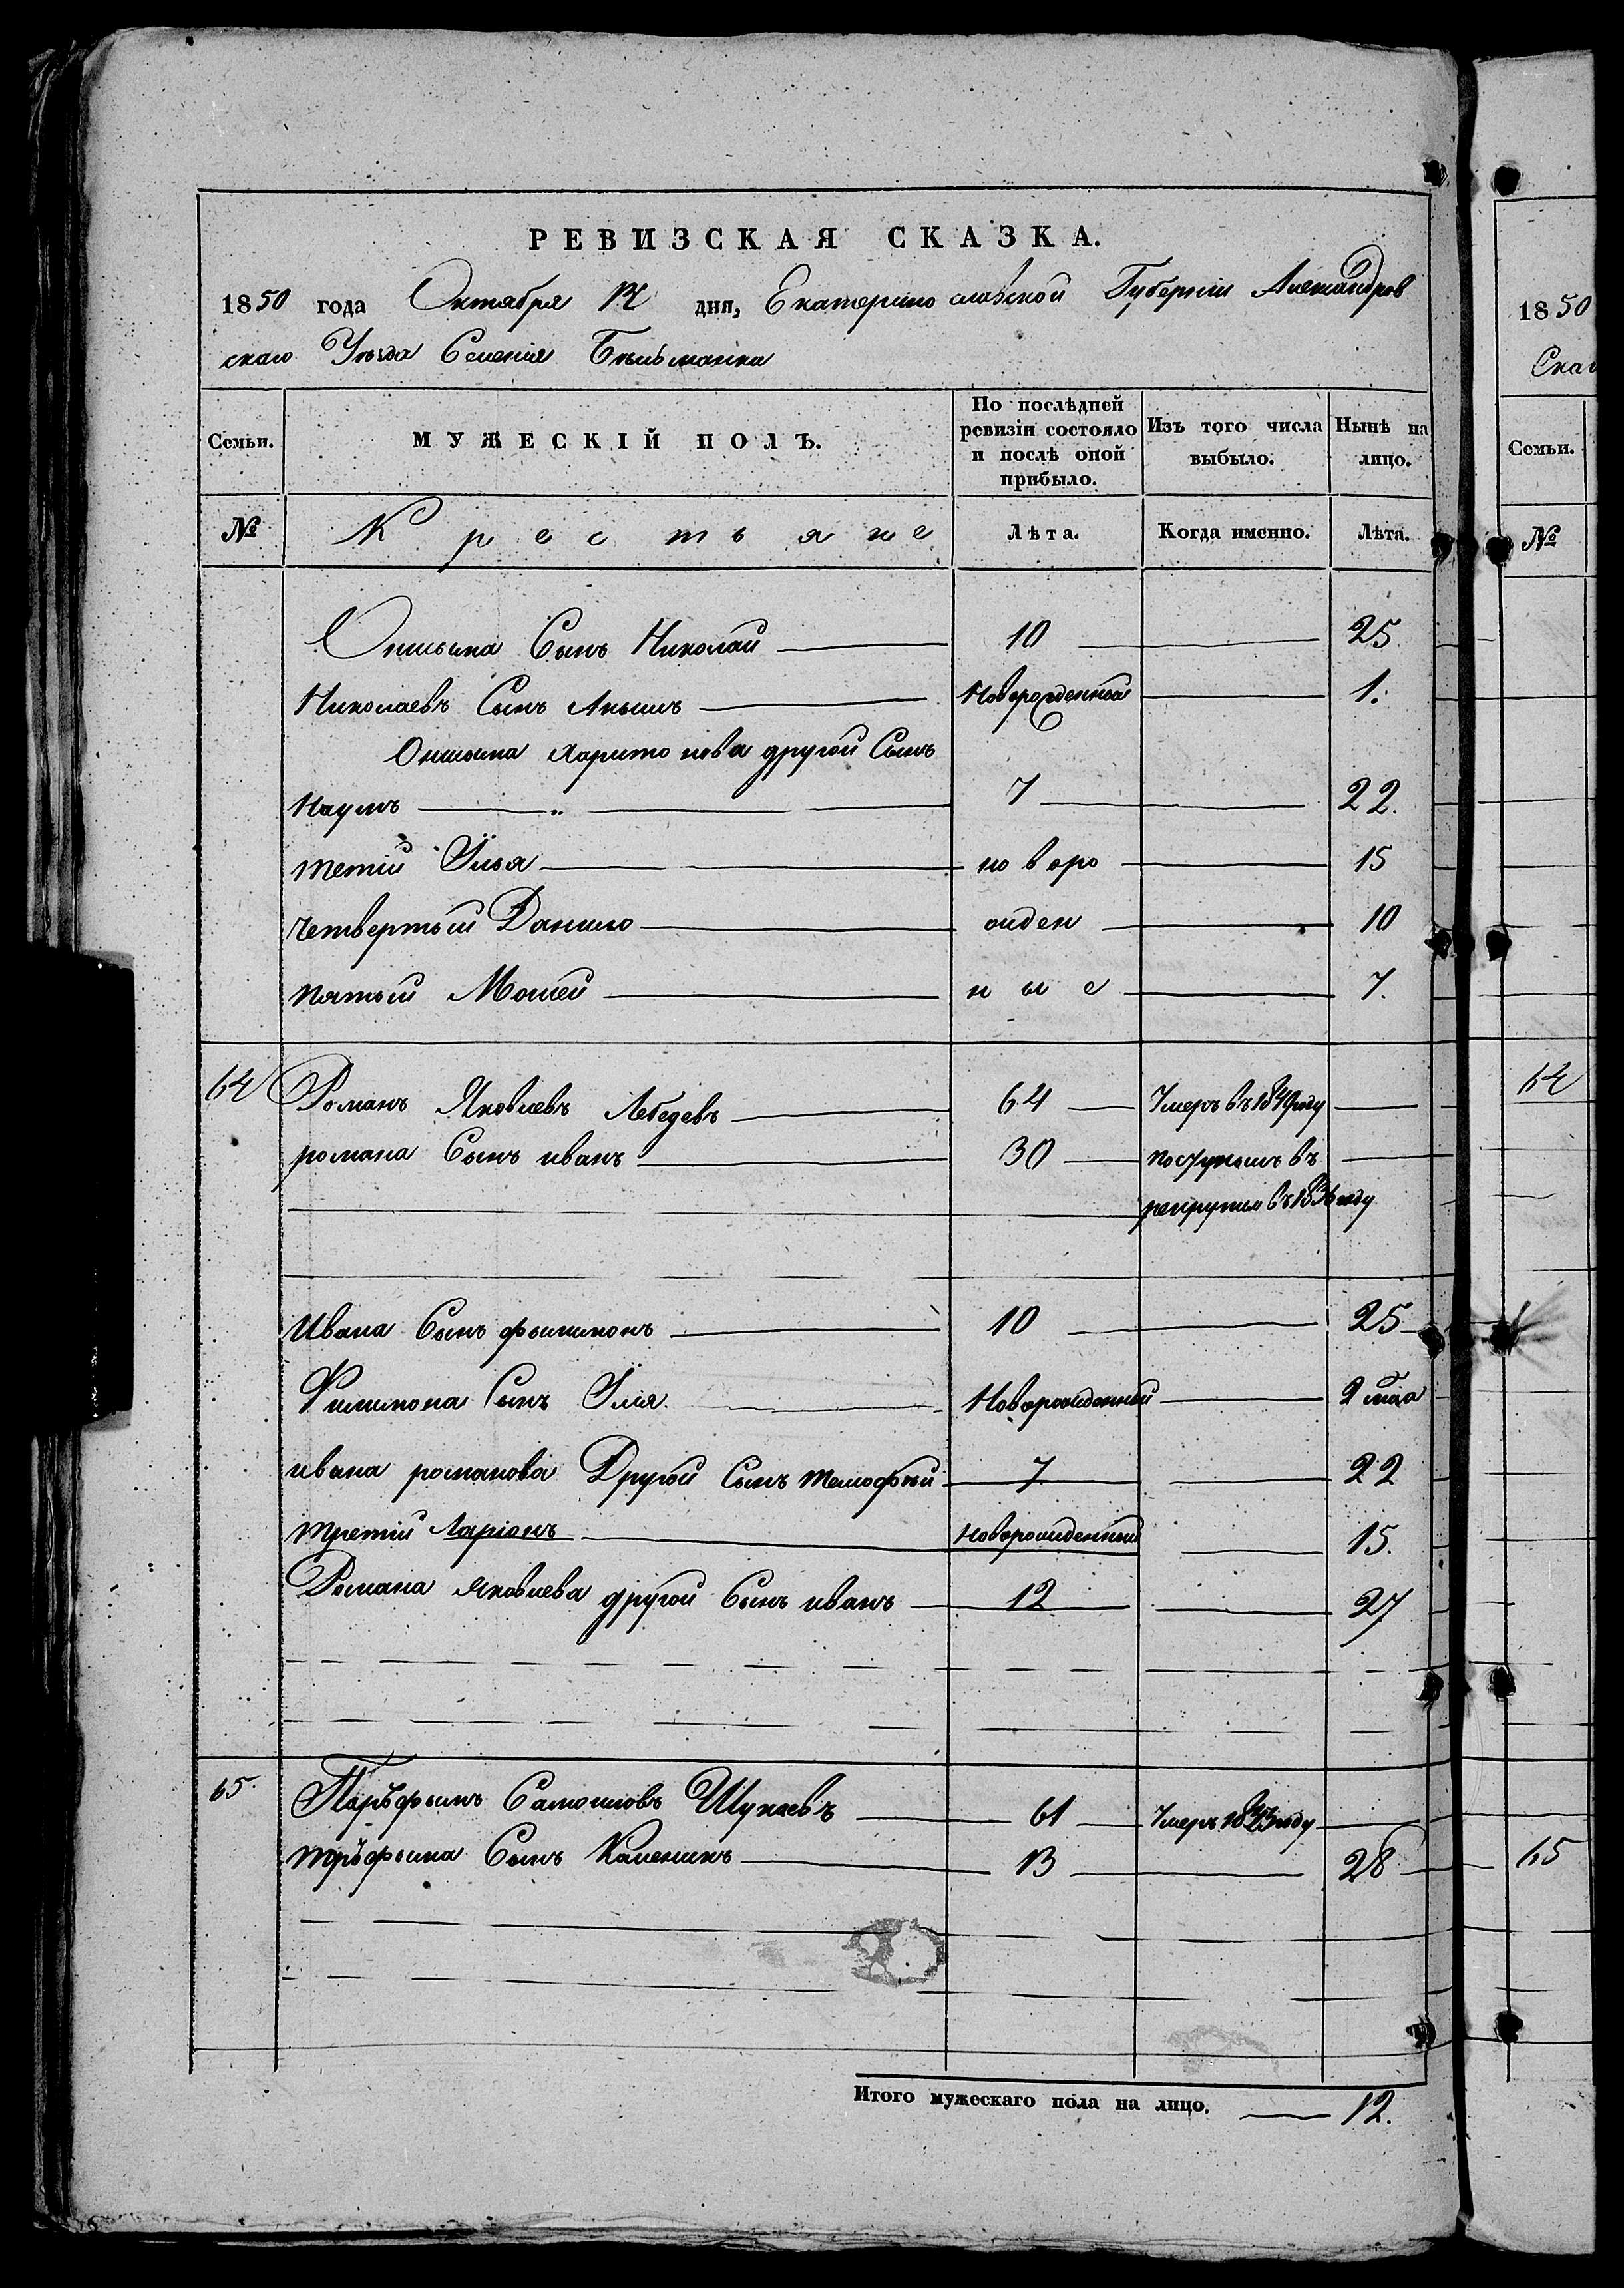 РЕВИЗСКАЯ СКАЗКА.
1850 года Октября дня, Екатерино славской Губерніи Александров
скаго Уѣзда Селенія Бѣльманка
Семьи. МУЖЕСКІЙ ПОЛЪ. По послѣдней ревизіи состояло и послѣ оной прибыло. Изъ того числа выбыло. Нынѣ на лицо.
№ Крестьяне Лѣта. Когда именно. Лѣта.
Онисима Сынъ Николай 10 25
Николаевъ Сынъ Акимъ Новорожденной 1.
Онисима Харитонова другой Сынъ
Наумъ 7 22.
тетій Илья новоро 15
четвертый Данило жден 10
пятый Мосей ные 7.
64 Романъ Яковлевъ Лебедевъ 64 Умеръ въ 1849 году
романа Сынъ иванъ 30 поступилъ въ
рекруты въ 1836 году
Ивана Сынъ филимонъ 10 25
Филимона Сынъ Илія Новорожденный 2
ивана романова Другой Сынъ тимофѣй 7 22
третій Ларіонъ новорожденный 15.
Романа Яковлева другой Сынъ иванъ 12 27
65 Сынъ 61 Умеръ году
Сынъ 13 28
Итого мужескаго пола на лицо. 12.
1850
Ска
Семьи.
№
64
65